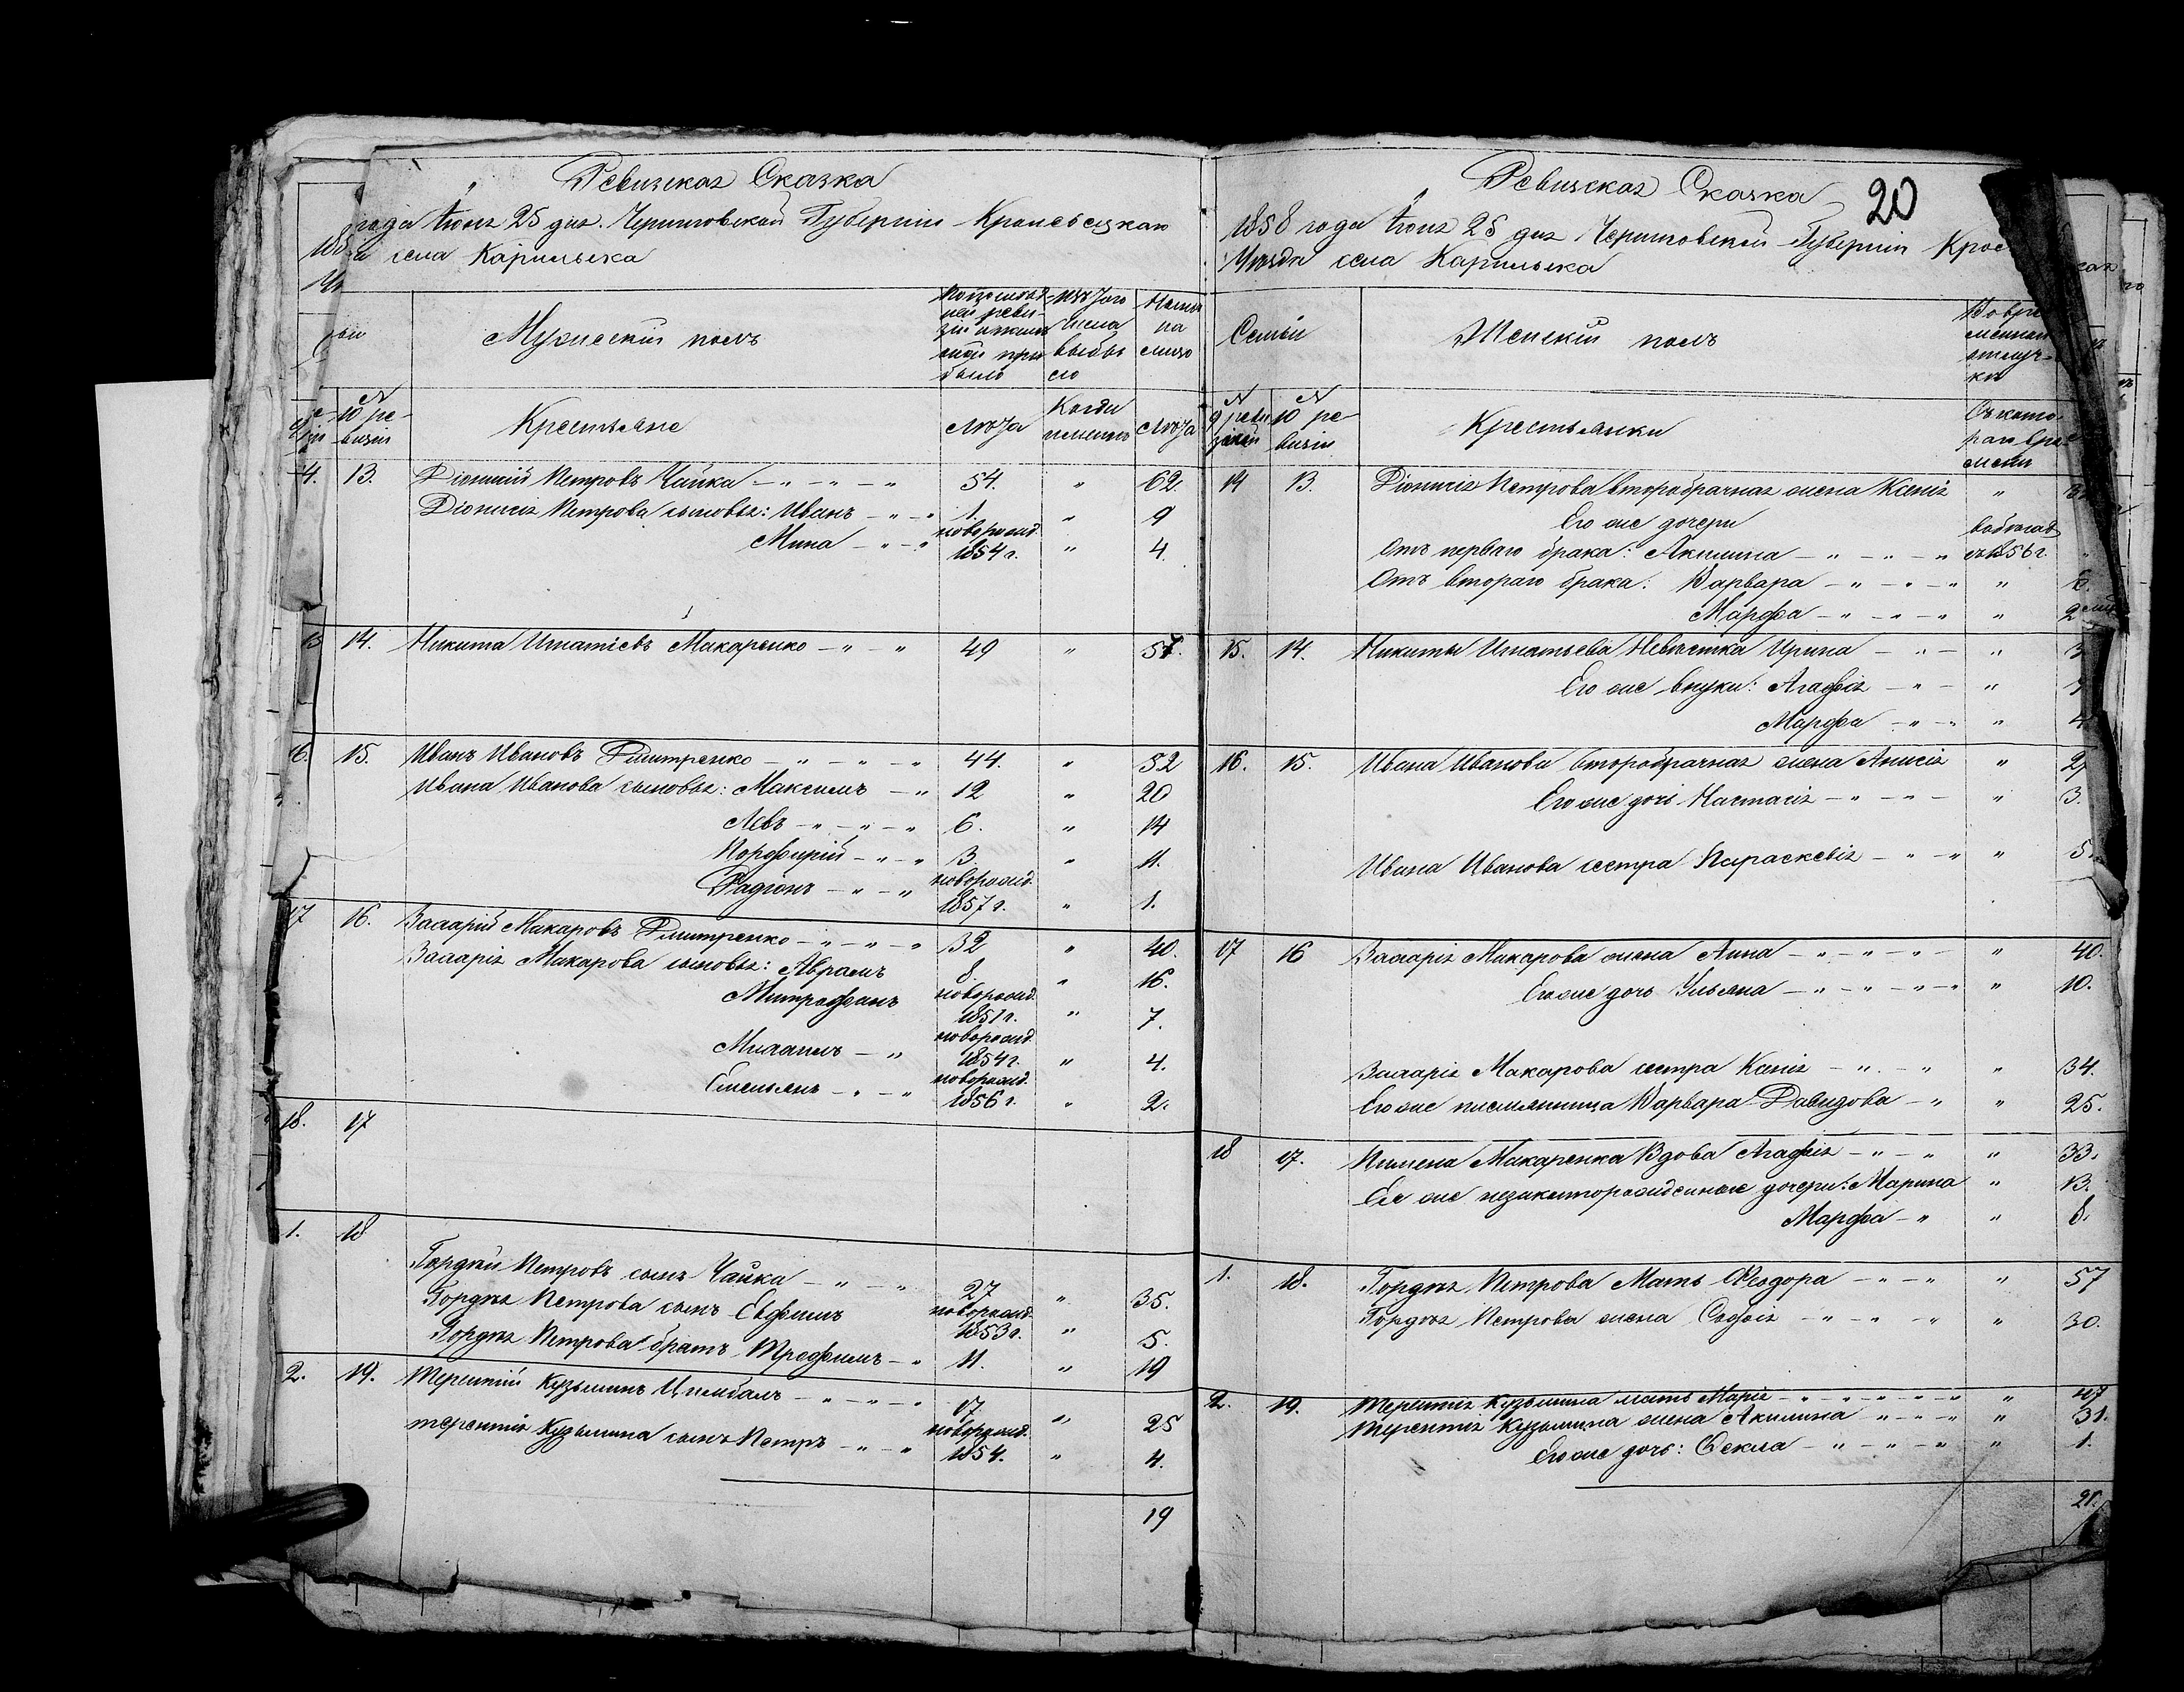 Ревизская Сказка
года Июня 25 дня. Черниговской Губернии Кролевецкаго
села Карыльска
Мужескій полъ
По послѣдней ревизіи и послѣ оной прибыло
Изъ того числа выбыло
Нынѣ на лицо
10 ревизіи
Крестьяне
Лѣта
Когда именно
Лѣта
4. 13. Діонисій Петровъ Чайка — " — " — " 54. " 62.
Діонисія Петрова сыновья: Иванъ — " — " 1. " 9
Мина — " — " новорожд. 1854 г. " 4.
15 14. Никита Игнатіевъ Макаренко — " — " 49 " 57.
16. 15. Иванъ Ивановъ Дмитренко — " — " — " 44. " 52
Ивана Иванова сыновья: Максимъ — " 12 " 20
Левъ — " — " — " 6. " 14
Порфирій — " — " 3. " 11.
Радіонъ — " — " новорожд. 1857 г. " 1.
17 16. Захарій Макаровъ Дмитренко — " — " — " 32 " 40.
Захарія Макарова сыновья: Аврамъ 8. " 16.
Митрофанъ новорожд. 1851 г. " 7.
Михаилъ — " новорожд. 1854 г. " 4.
Емельянъ — " — " новорожд. 1856 г. " 2.
18. 17
1. 18
Гордѣй Петровъ сынъ Чайка — " — " 27 " 35.
Гордѣя Петрова сынъ Евфимъ новорожд. 1853 г. " 5.
Гордѣя Петрова братъ Трофимъ — " 11. " 19
2. 19. Терентій Кузьминъ Цимбалъ — " — " — " 17 " 25
Терентія Кузьмина сынъ Петръ — " — " новорожд. 1854. " 4.
19
Ревизская Сказка
20
1858 года Июня 25 дня Черниговской Губерніи
Уѣзда села Карыльска
Семьи
Женскій полъ
Во временной отлучкѣ
9 ревизіи
10 ревизіи
Крестьянки
Съ котораго времени
14 13. Діонисія Петрова второбрачная жена Ксенія "
Его же дочери
Отъ перваго брака: Акилина — " — " — " 1856 г. "
Отъ втораго брака: Варвара — " — " — " " 6.
Марфа — " — " — " " 2
15. 14. Никиты Игнатьева Невѣстка Ирина — " — "
Его же внуки: Агафія — " — "
Марфа — " — " " 4
16. 15. Ивана Иванова второбрачная жена Анисія "
Его же дочь Настасія — " — " — " 3.
Ивана Иванова сестра Параскевія — " — " "
17 16 Захарія Макарова жена Анна — " — " — " — " 40.
Его же дочь Ульяна — " — " — " — " " 10.
Захарія Макарова сестра Ксенія — " — " " 34.
Его же племянница Варвара Давидова — " " 25.
18 17. Пимена Макаренка Вдова Агафія — " — " " 33.
Ея же незаконнорожденные дочери: Марина " 13.
Марфа — " " 8.
1. 18. Гордѣя Петрова Мать Феодора — " — " " 57
Гордѣя Петрова жена Софія — " — " — " " 30.
2. 19. Терентія Кузьмина мать Марія — " — " — " — " " 47
Терентія Кузьмина жена Акилина — " — " — " " 31.
Его же дочь: Фекла — " — " — " " 1.
21.